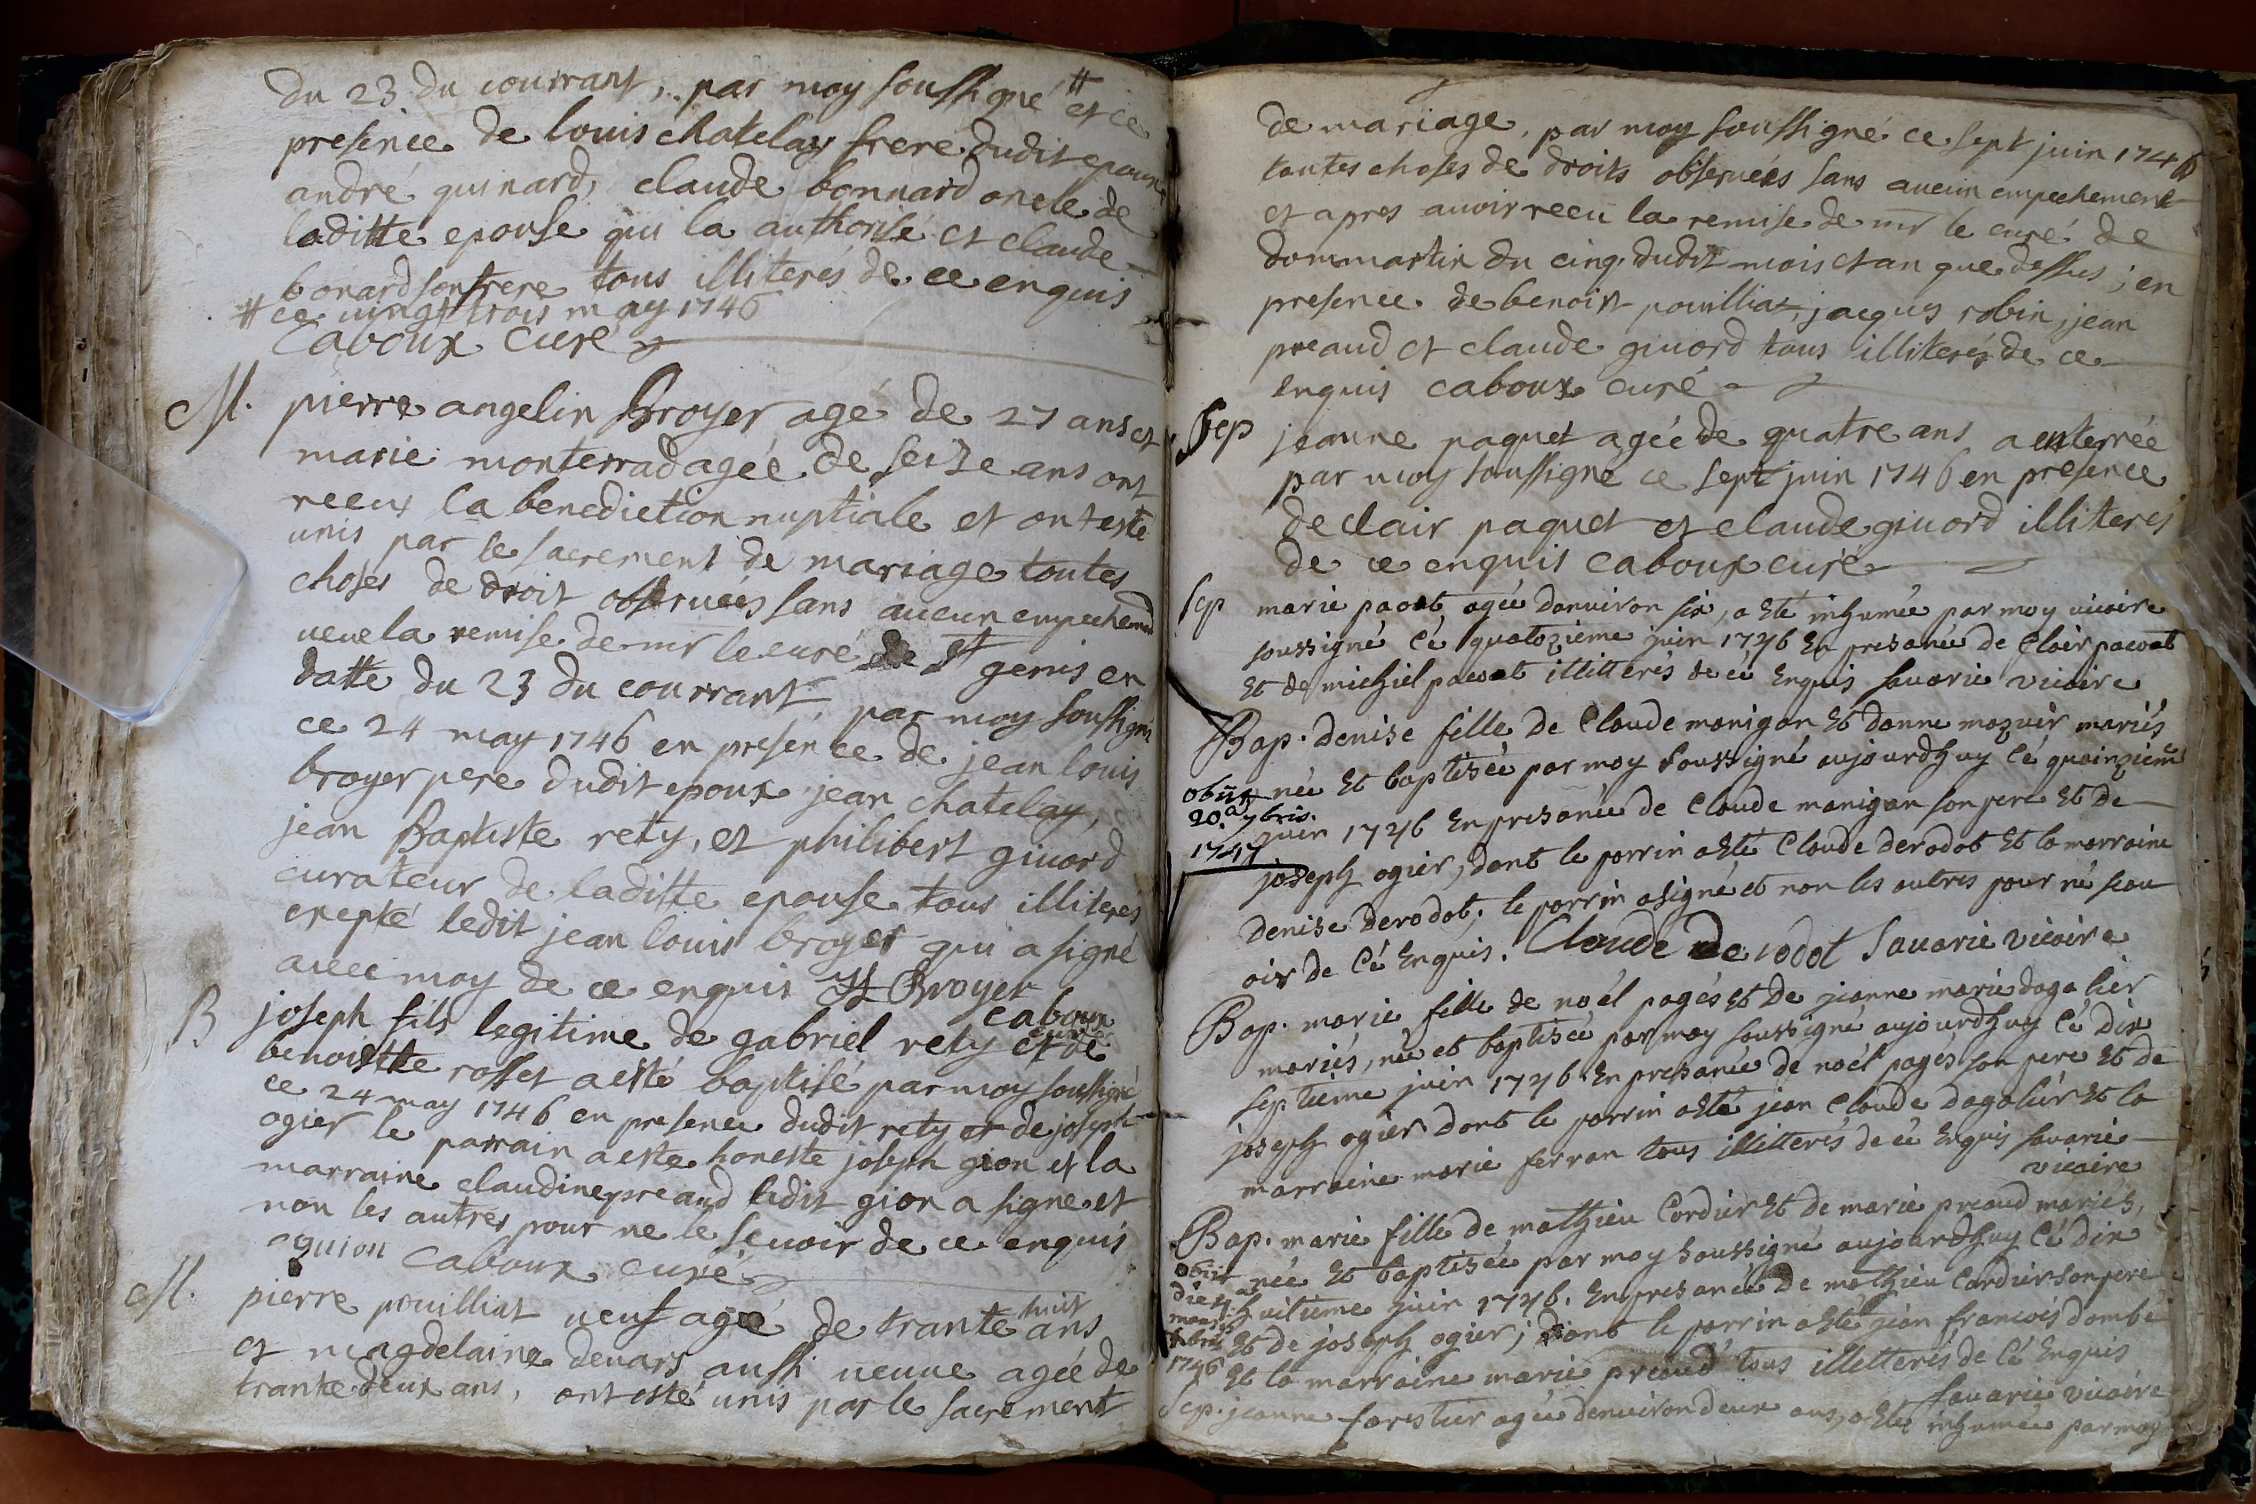 du 23 du courrant, par moy soussigné # et ce
presence de louis chatelay frere dudit epoux
andré guinard, claude bonnard oncle de
laditte epouse qui la authorisé et claude
bonard son frere tous illiterés de ce enquis
# ce vingt trois may 1746
Caboux curé
M. pierre angelin Broyer agé de 27 ans et
marie monterrad agée de seize ans ont
receux la benediction nuptiale et ont esté
unis par le sacrement de mariage toutes
choses de droit observées sans aucun empechement
veue la remise de mr le curé de St genis en
datte du 23 du courrant, par moy soussigné
ce 24 may 1746 en presence de jean louis
broyer pere dudit epoux jean chatelay,
jean Baptiste rety, et philibert givord
curateur de laditte epouse tous illiteres
exepté ledit jean louis broyer qui a signé
avec moy de ce enquis JL Broyer
caboux
curé
B joseph fils legitime de gabriel rety et de
benoistte rosset a esté baptisé par moy soussigné
ce 24 may 1746 en presence dudit rety et de joseph
ogier le parrain a este honeste joseph gion et la
marraine claudine preaud ledit gion a signe et
non les autres pour ne le scuoir de ce enquis
guion Caboux curé
M. pierre pouilliat veuf agé de trante huit ans
et magdelaine devars aussi veuve agée de
trante deux ans, ont esté unis par le sacrement
de mariage, par moy soussigné ce sept juin 1746
toutes choses de droits observées sans aucun empechement
et apres auoir receu la remise de mr le curé de
dommartin du cinq dudit mois et an que dessus, en
presence de benoist pouilliat, jacques robin, jean
preaud et claude givord tous illiterés de ce
enquis caboux curé
Sep jeanne paquet agée de quatre ans a enterrée
par moy soussigné ce sept juin 1746 en presence
de clair paquet et claude givord illiteres
de ce enquis caboux curé
Sep marie pacot agée danviron six, a été inhumée par moy vicaire
soussigné cé quatozieme juin 1746 En presance de Clair pacoat
Et de michiel pacoat illitteres de cé Enquis sauarie vicaire
Bap. denise fille de Claude monigon Et donne mazuir mariés
née Et baptisée par moy soussigné aujourdhuy Cé quainzieme
obiit
20.a 7bris.
1747
juin 1746 En presance de Claude manigan son pere Et de
joseph ogier, dont le parrin a Eté Claude derodot Et la marraine
denise derodot, le parrin a signé et non les autres pour né scau
oir de Cé Enquis. Claude De rodot Sauarie vicaire
Bap. marie fille de noél pagés Et De jeanne marie dagalier
mariés, née et baptisée par moy soussigné aujourdhuy Cé Dix
septieme juin 1746. En presance de noél pagés son pere Et de
joseph ogier dont le parrin a Eté jean Claude dagaliér Et la
marraine marie ferran tous illitterés de cé Enquis sauarie
vicaire
Bap. marie fille de mathieu Cordier Et de marie preaud mariés,
née Et baptisée par moy soussigné aujourdhuy Cé dix
huitieme juin 1746. En presance De mathieu Cordier son pere
obiit
1746
Et de joseph ogier; dont le parrin a Eté jean francois dombé
Et la marraine marie préaud tous illetterés de Cé Enquis
sauarie vicaire
Sep. jeanne farestier agée denviron deux ans, a Eté inhumée par moy